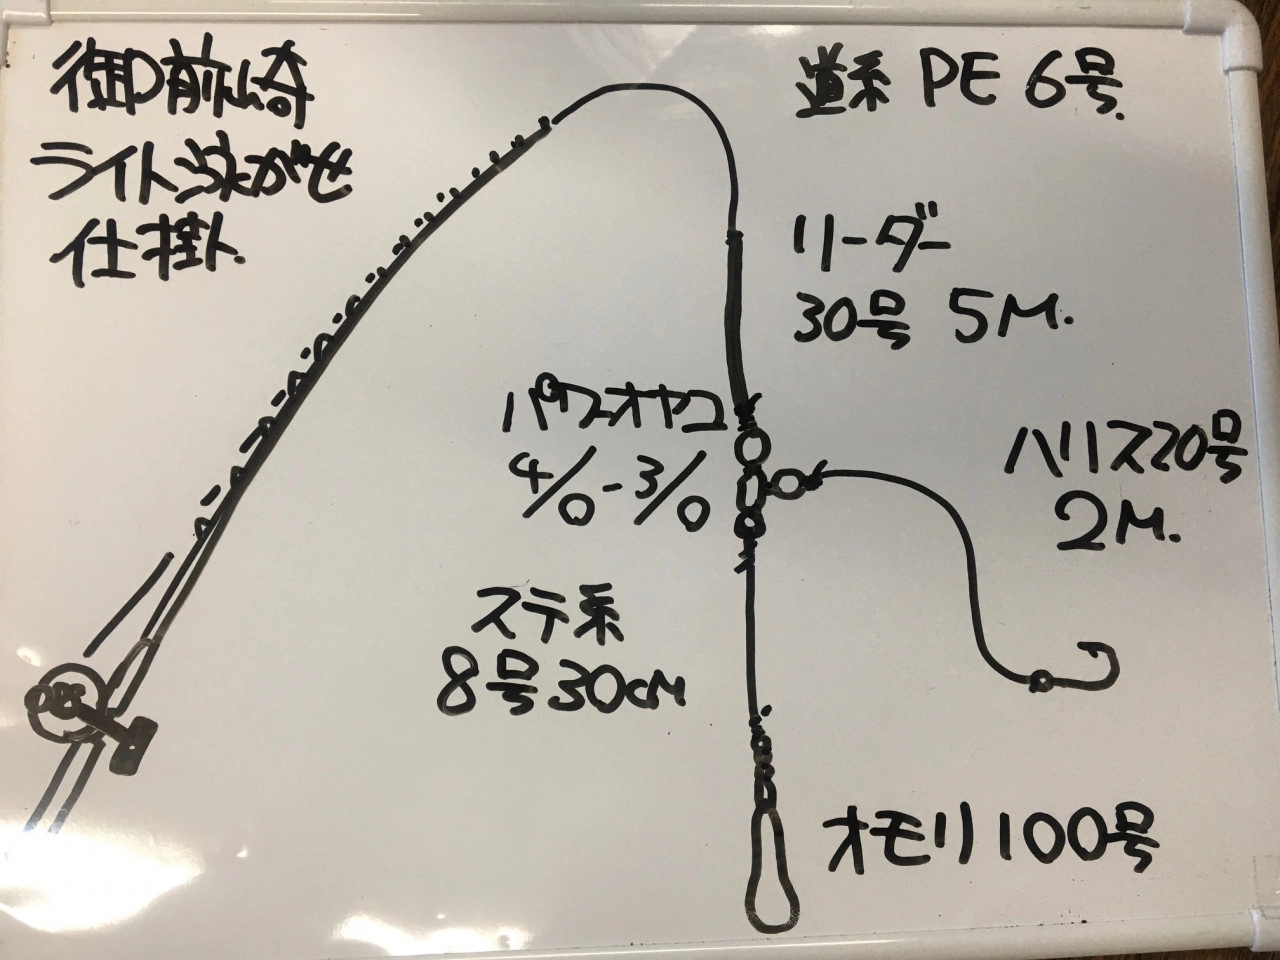 御前崎
ライト泳がせ
仕掛
道糸 PE 6号.
リーダー
30号 5M.
パワーオヤコ
4/0-3/0
ハリス20号
2M.
ステ糸
8号30cM
オモリ100号